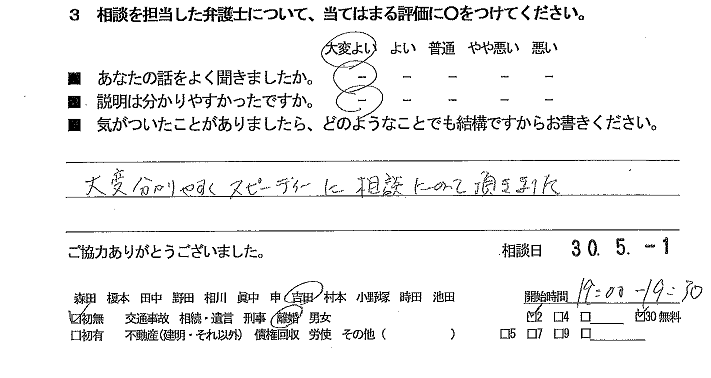 3 相談を担当した弁護士について、当てはまる評価に〇をつけてください。
大変よい よい 普通 やや悪い 悪い
■ あなたの話をよく聞きましたか。 － － － － －
■ 説明は分かりやすかったですか。 － － － － －
■ 気がついたことがありましたら、どのようなことでも結構ですからお書きください。
大変分かりやすくスピーディーに相談にのって頂きました
ご協力ありがとうございました。 相談日 30. 5. -1
森田 榎本 田中 野田 相川 眞中 申 吉田 村本 小野塚 時田 池田 開始時間 19:00-19:30
☑初無 交通事故 相続・遺言 刑事 離婚 男女 ☑2 □4 □____ ☑30 無料
□初有 不動産(建明・それ以外) 債権回収 労使 その他( ) □5 □7 □9 □____